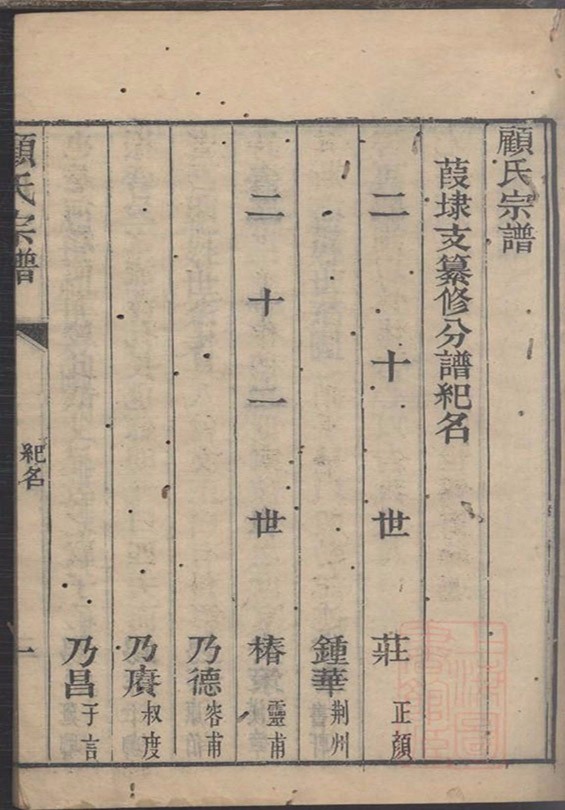 顧氏宗譜
葭埭支纂修分譜紀名
二十世 莊 正顏
鍾華 荆州
二十一世 椿策 靈甫
乃德 容甫
乃賡 叔度
乃昌 子言
顧氏宗譜 紀名 一